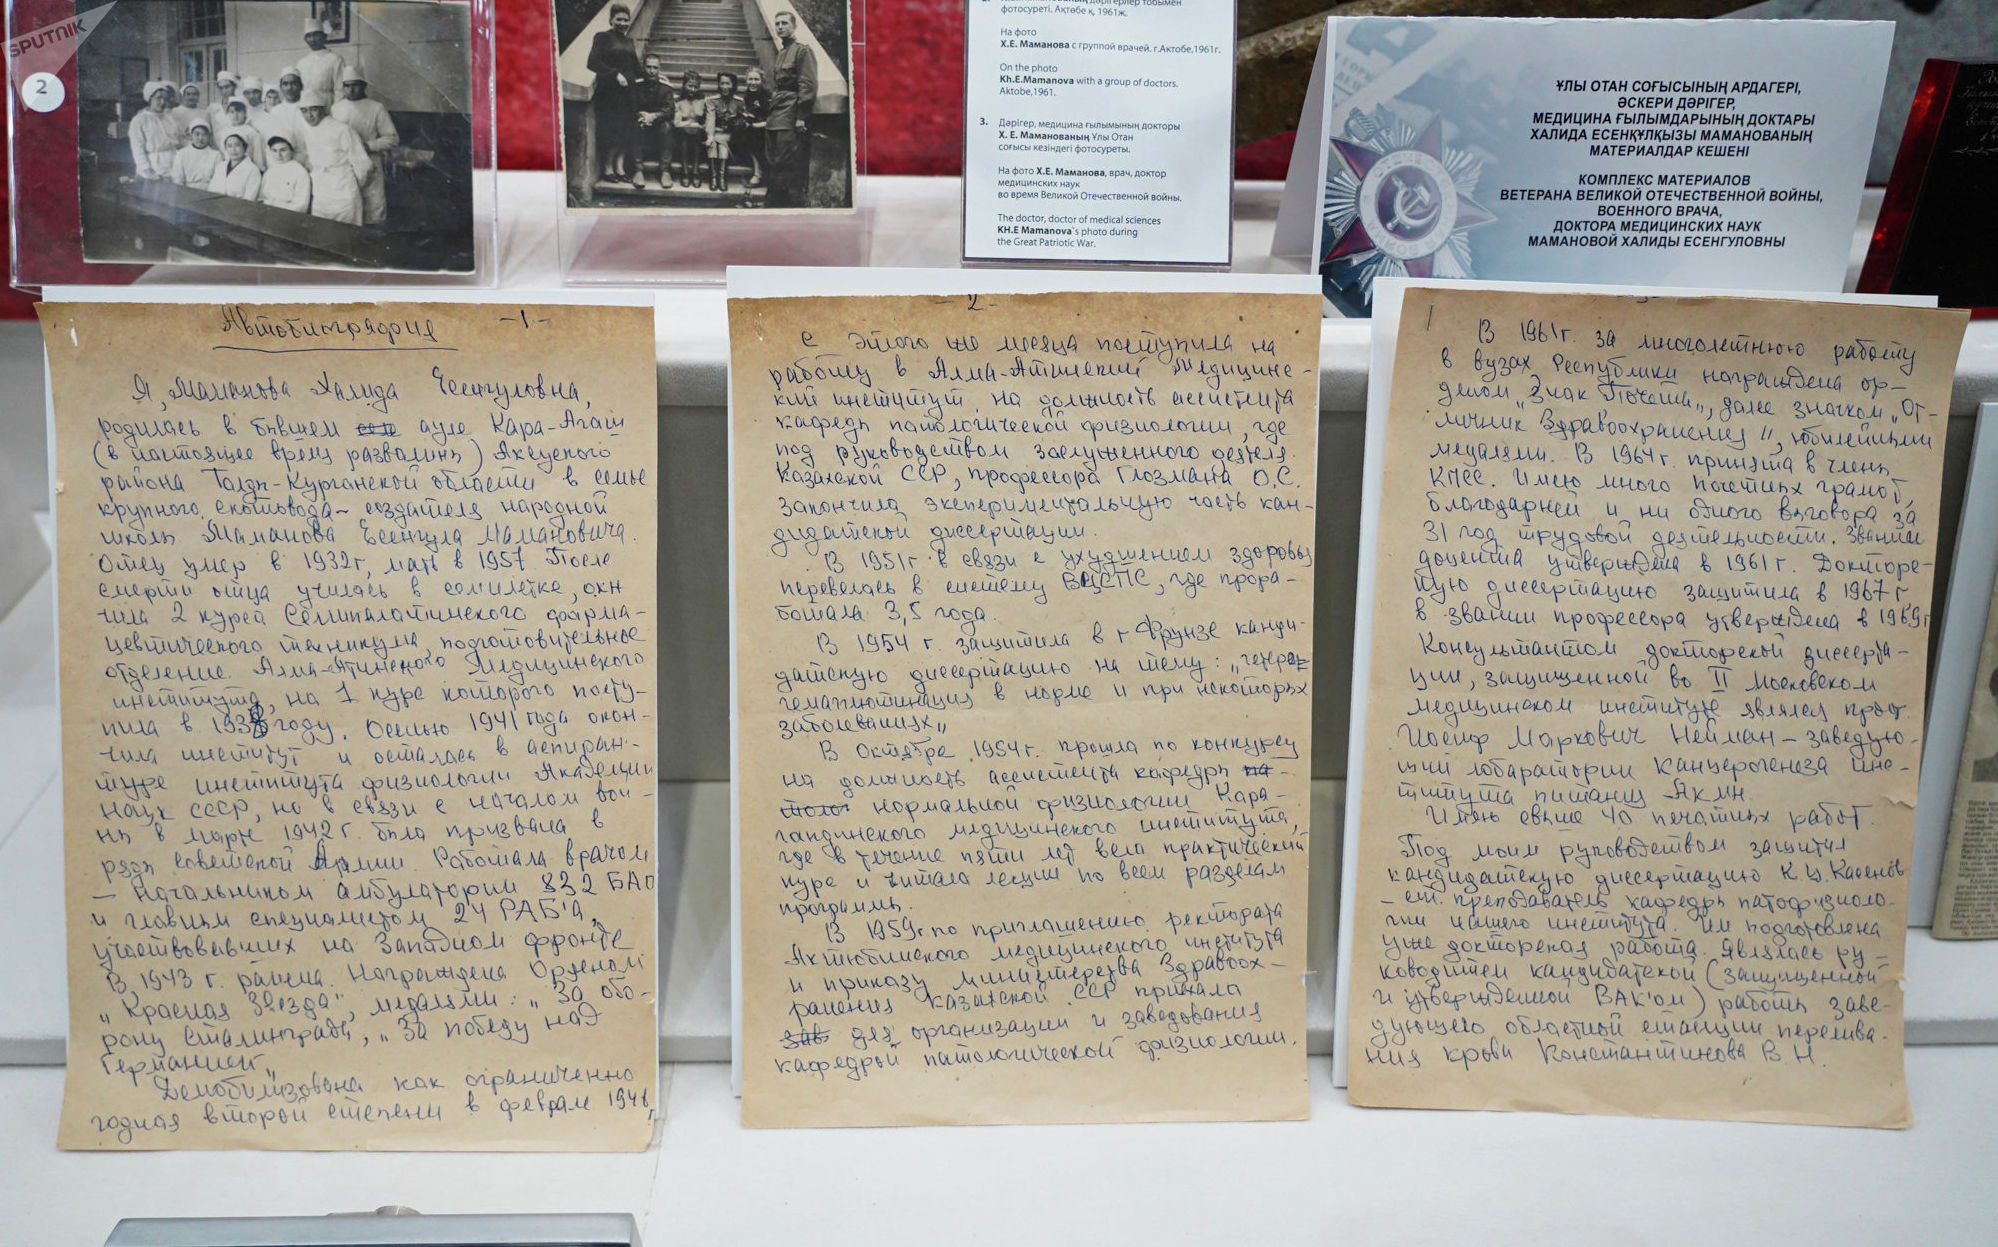 SPUTNIK
2
дәрігерлер тобымен
фотосуреті. Ақтөбе қ, 1961ж.
На фото
Х.Е. Маманова с группой врачей. г.Актобе,1961г.
On the photo
Kh.E.Mamanova with a group of doctors.
Aktobe,1961.
3. Дәрігер, медицина ғылымының докторы
Х. Е. Маманованың Ұлы Отан
соғысы кезіндегі фотосуреты.
На фото Х.Е. Маманова, врач, доктор
медицинских наук
во время Великой Отечественной войны.
The doctor, doctor of medical sciences
KH.E Mamanova`s photo during
the Great Patriotic War.
ҰЛЫ ОТАН СОҒЫСЫНЫҢ АРДАГЕРІ,
ӘСКЕРИ ДӘРІГЕР,
МЕДИЦИНА ҒЫЛЫМДАРЫНЫҢ ДОКТАРЫ
ХАЛИДА ЕСЕНҚҰЛҚЫЗЫ МАМАНОВАНЫҢ
МАТЕРИАЛДАР КЕШЕНІ
КОМПЛЕКС МАТЕРИАЛОВ
ВЕТЕРАНА ВЕЛИКОЙ ОТЕЧЕСТВЕННОЙ ВОЙНЫ,
ВОЕННОГО ВРАЧА,
ДОКТОРА МЕДИЦИНСКИХ НАУК
МАМАНОВОЙ ХАЛИДЫ ЕСЕНГУЛОВНЫ
Автобиография -1-
Я, Маманова Халида Есенгуловна,
родилась в бывшем ауле Кара-Агаш
(в настоящее время развалины) Аксуского
района Талды-Курганской области в семье
крупного скотовода - создателя народной
школы Маманова Есенгула Мамановича.
Отец умер в 1932г, мать в 1957. После
смерти отца училась в семилетке, окн
чила 2 курса Семипалатинского фарма-
цевтического техникума, подготовительное
отделение Алма-Атинского Медицинского
института, на 1 курс которого посту-
пила в 1938 году. Осенью 1941 года окон-
чила институт и осталась в аспиран-
туре института физиологии Академии
Наук СССР, но в связи с началом вой-
ны в марте 1942 г. была призвана в
ряды Советской Армии. Работала врачом
- Начальником амбулатории 832 БАО
и главным специалистом 24 РАБ'а,
участвовавших на Западном фронте
В 1943 г. ранена. Награждена Орденом
„Красная Звезда", медалями: „За обо-
рону Сталинграда, „За победу над
Германией„
Демобилизована как ограниченно
годная второй степени в феврале 1946г
-2-
С этого же месяца поступила на
работу в Алма-Атинский Медицинс-
кий институт на должность ассистента
кафедры патологической физиологии, где
под руководством заслуженного деятеля
Казахской ССР, профессора Глозмана О.С.
закончила экспериментальную часть кан-
дидатской диссертации.
В 1951г в связи с ухудшением здоровья
перевелась в систему ВЦСПС, где прора-
ботала 3,5 года.
В 1954 г. защитила в г Фрунзе канди-
датскую диссертацию на тему: „гетеро
гемагглютинация в норме и при некоторых
заболеваниях„
В Октябре 1954г. прошла по конкурсу
на должность ассистента кафедры па-
толог нормальной физиологии Кара-
гандинского медицинского института,
где в течение пяти лет вела практический
курс и читала лекции по всем разделам
программы.
В 1959г. по приглашению ректората
Актюбинского медицинского института
и приказу министерства Здравоох-
ранения Казахской ССР приехала
зав для организации и заведования
кафедрой патологической физиологии.
-3-
В 1961г. за многолетнюю работу
в вузах Республики награждена ор-
деном „Знак Почета„, далее значком „От-
личник Здравоохранения", юбилейными
медалями. В 1964г. принята в члены
КПСС. Имею много почетных грамот,
благодарней и ни одного выговора за
31 год трудовой деятельности. Звание
доцента утверждена в 1961 г. Докторс-
кую диссертацию защитила в 1967 г
в звании профессора утверждена в 1969г
Консультантом докторской диссерта-
ции, защищенной во II Московском
медицинском институте являлся проф.
Иосиф Маркович Нейман - заведую-
щий лабараторией канцерогенеза инс-
титута питания АМН.
Имею свыше 40 печатных работ.
Под моим руководством защитил
кандидатскую диссертацию К.Ц. Касенов
- ст. преподаватель кафедры патофизиоло-
гии нашего института. Им подготовлена
уже докторская работа. Являлась ру-
ководителем кандидатской (защищенной
и утвержденной ВАК'ом) работы заве-
дующего областной станции перелива-
ния крови Константинова В.Н.